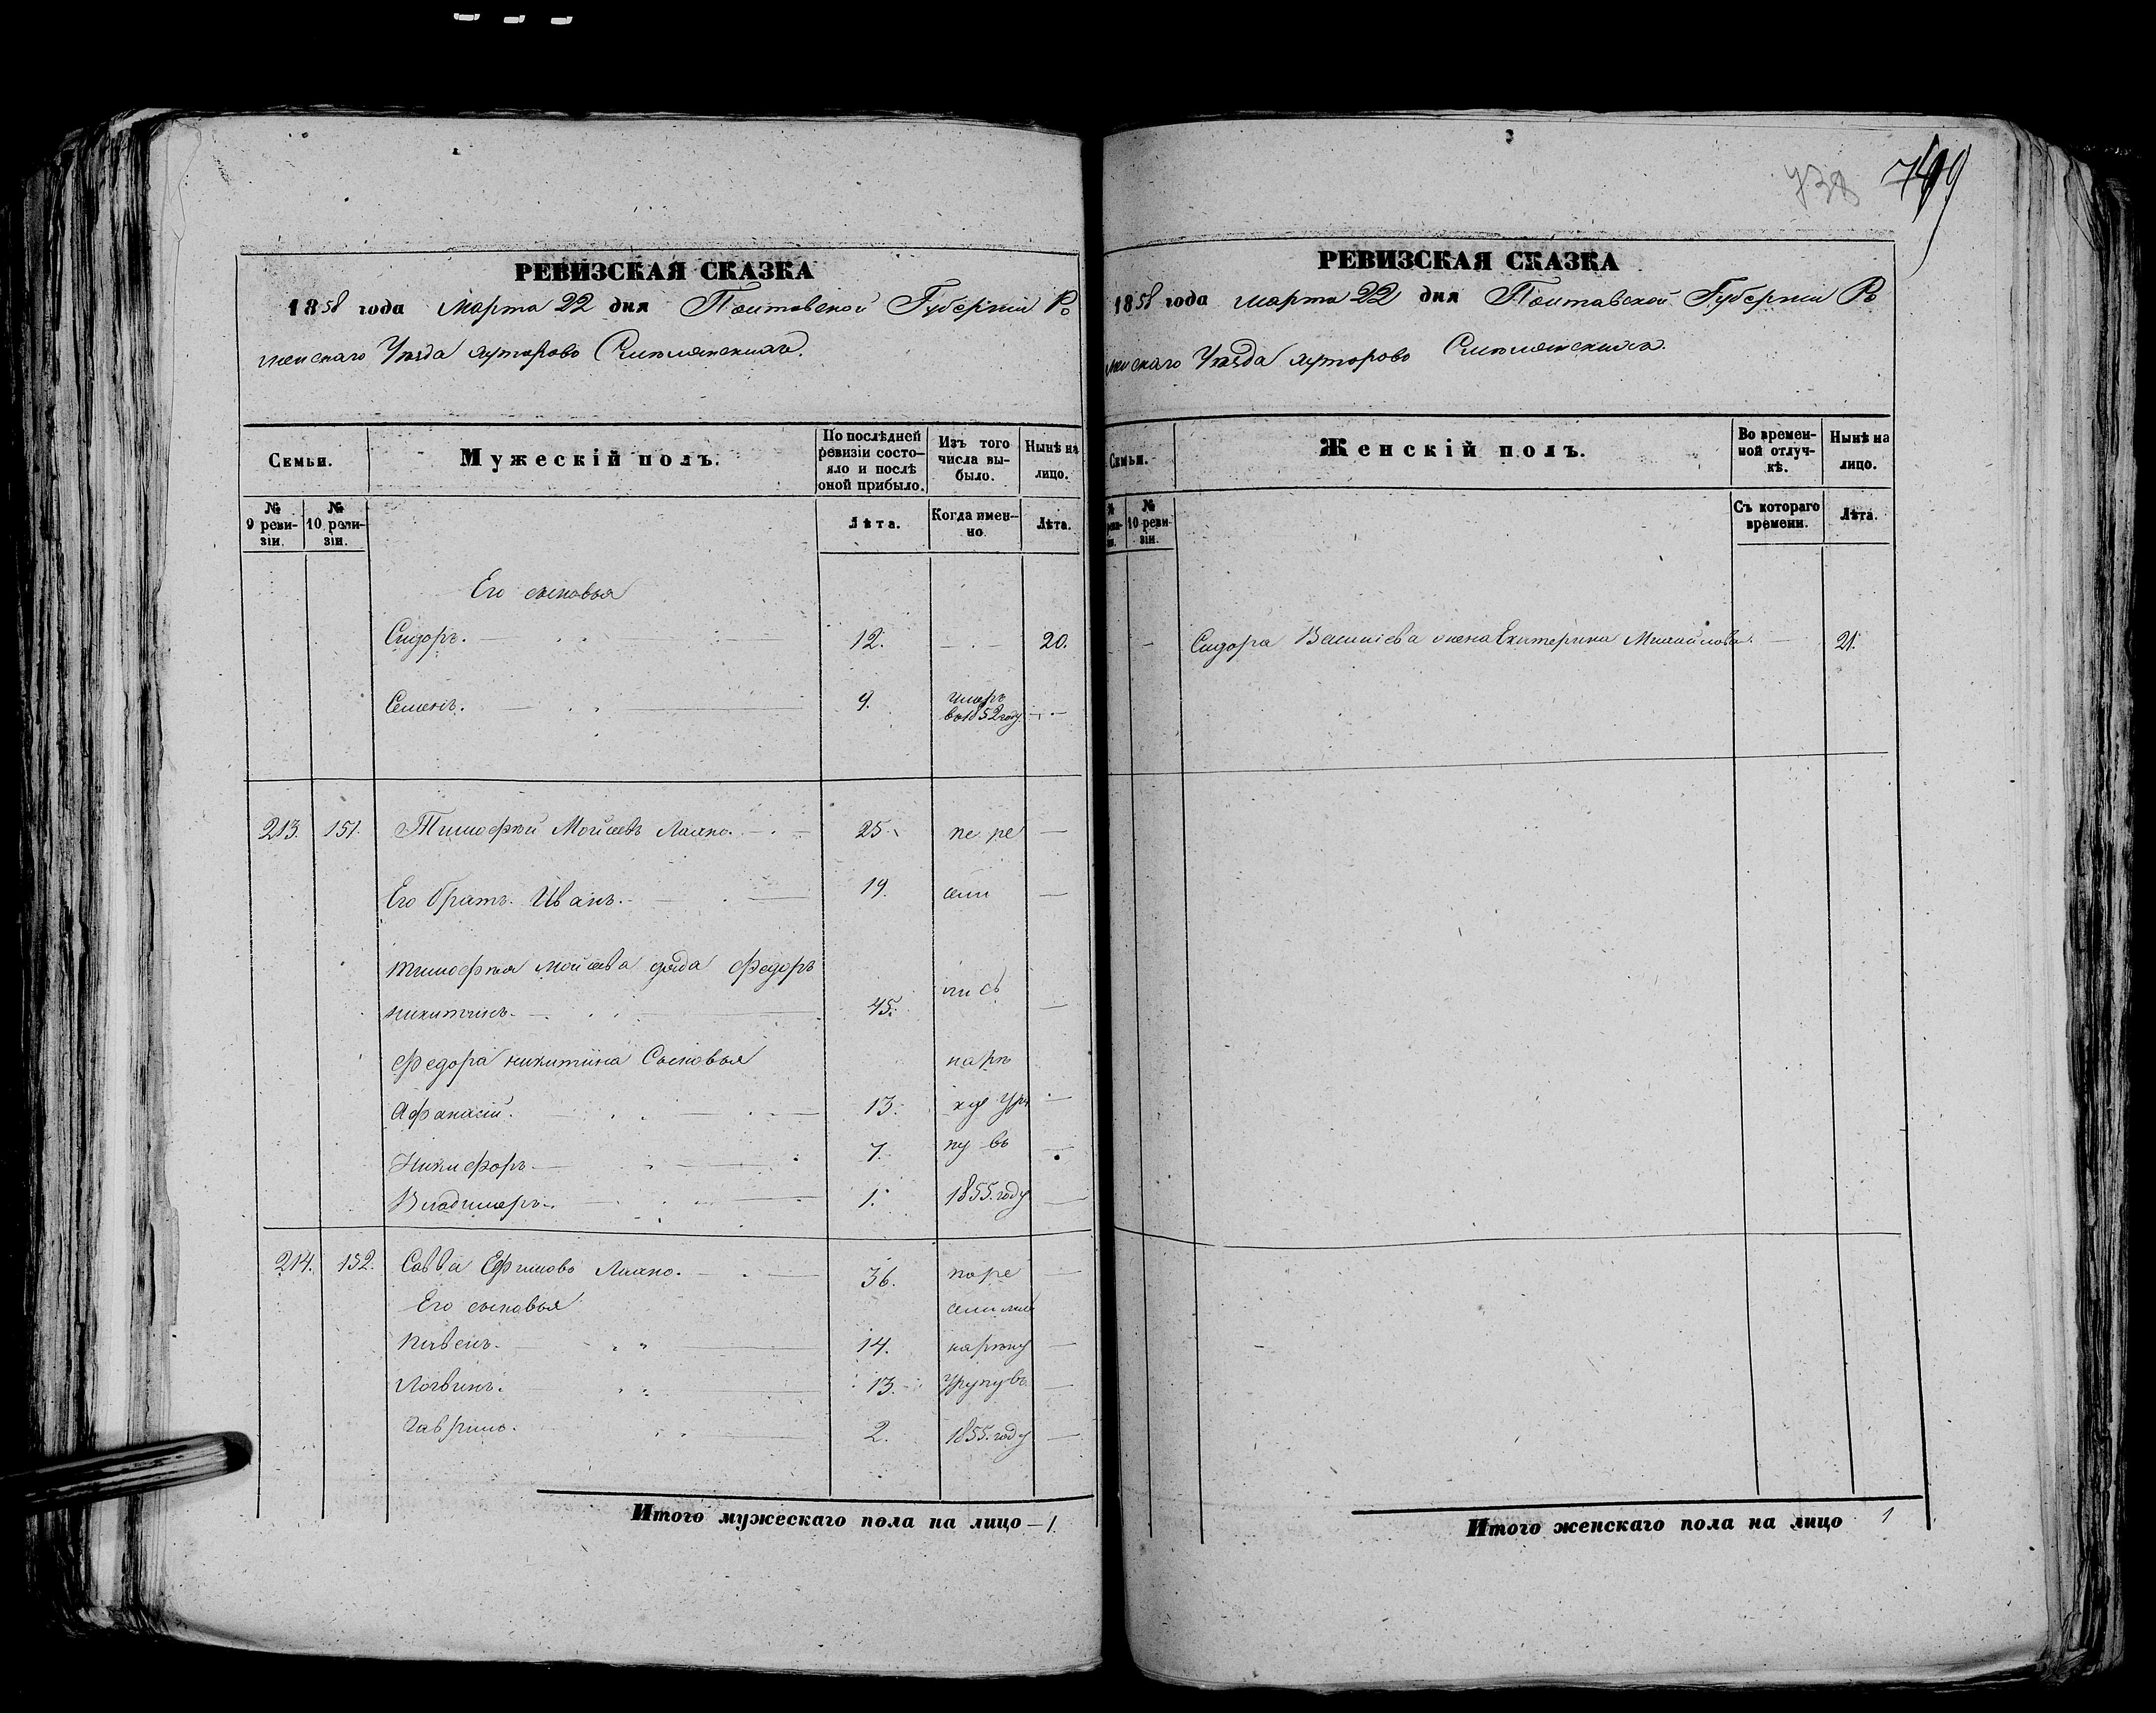 738 749
РЕВИЗСКАЯ СКАЗКА
1858 года Марта 22 дня Полтавской Губерніи Ро
менскаго Уѣзда хуторовъ
Семьи.
Мужескій полъ.
По послѣдней ревизіи состояло и послѣ оной прибыло.
Изъ того числа выбыло.
Нынѣ на лицо.
№ 9 ревизіи.
№ 10 ревизіи.
Лѣта.
Когда именно
Лѣта.
Его сыновья
Сидоръ. 12. 20.
Семенъ. 9. умеръ
въ 1852 году.
213. 151. Тимофей Мойсеевъ Ляхно. 25. пе ре
Его братъ Иванъ. 19. сели
Тимофея Мойсеева дядя Федоръ
Никитинъ. 45. лись
Федора Никитина Сыновья на рѣ
Афанасій. 13. ку Уру
Никифоръ. 7. пу въ
Владимеръ. 1. 1855. году
214. 152. Савва Ефимовъ Ляхно. 36. пере
Его сыновья селились
14. на рѣку
Логвинъ. 13. Урупу въ
Гаврило. 2. 1855. году
Итого мужескаго пола на лицо – 1.
РЕВИЗСКАЯ СКАЗКА
1858 года марта 22 дня Полтавской Губерніи Ро
менскаго Уѣзда хуторовъ
Семьи.
Женскій полъ.
Во временной отлучкѣ.
Нынѣ на лицо.
№ 10 ревизіи.
Съ котораго времени.
Лѣта.
Сидора Васильева жена Екатерина Михайлова. 21.
Итого женскаго пола на лицо 1